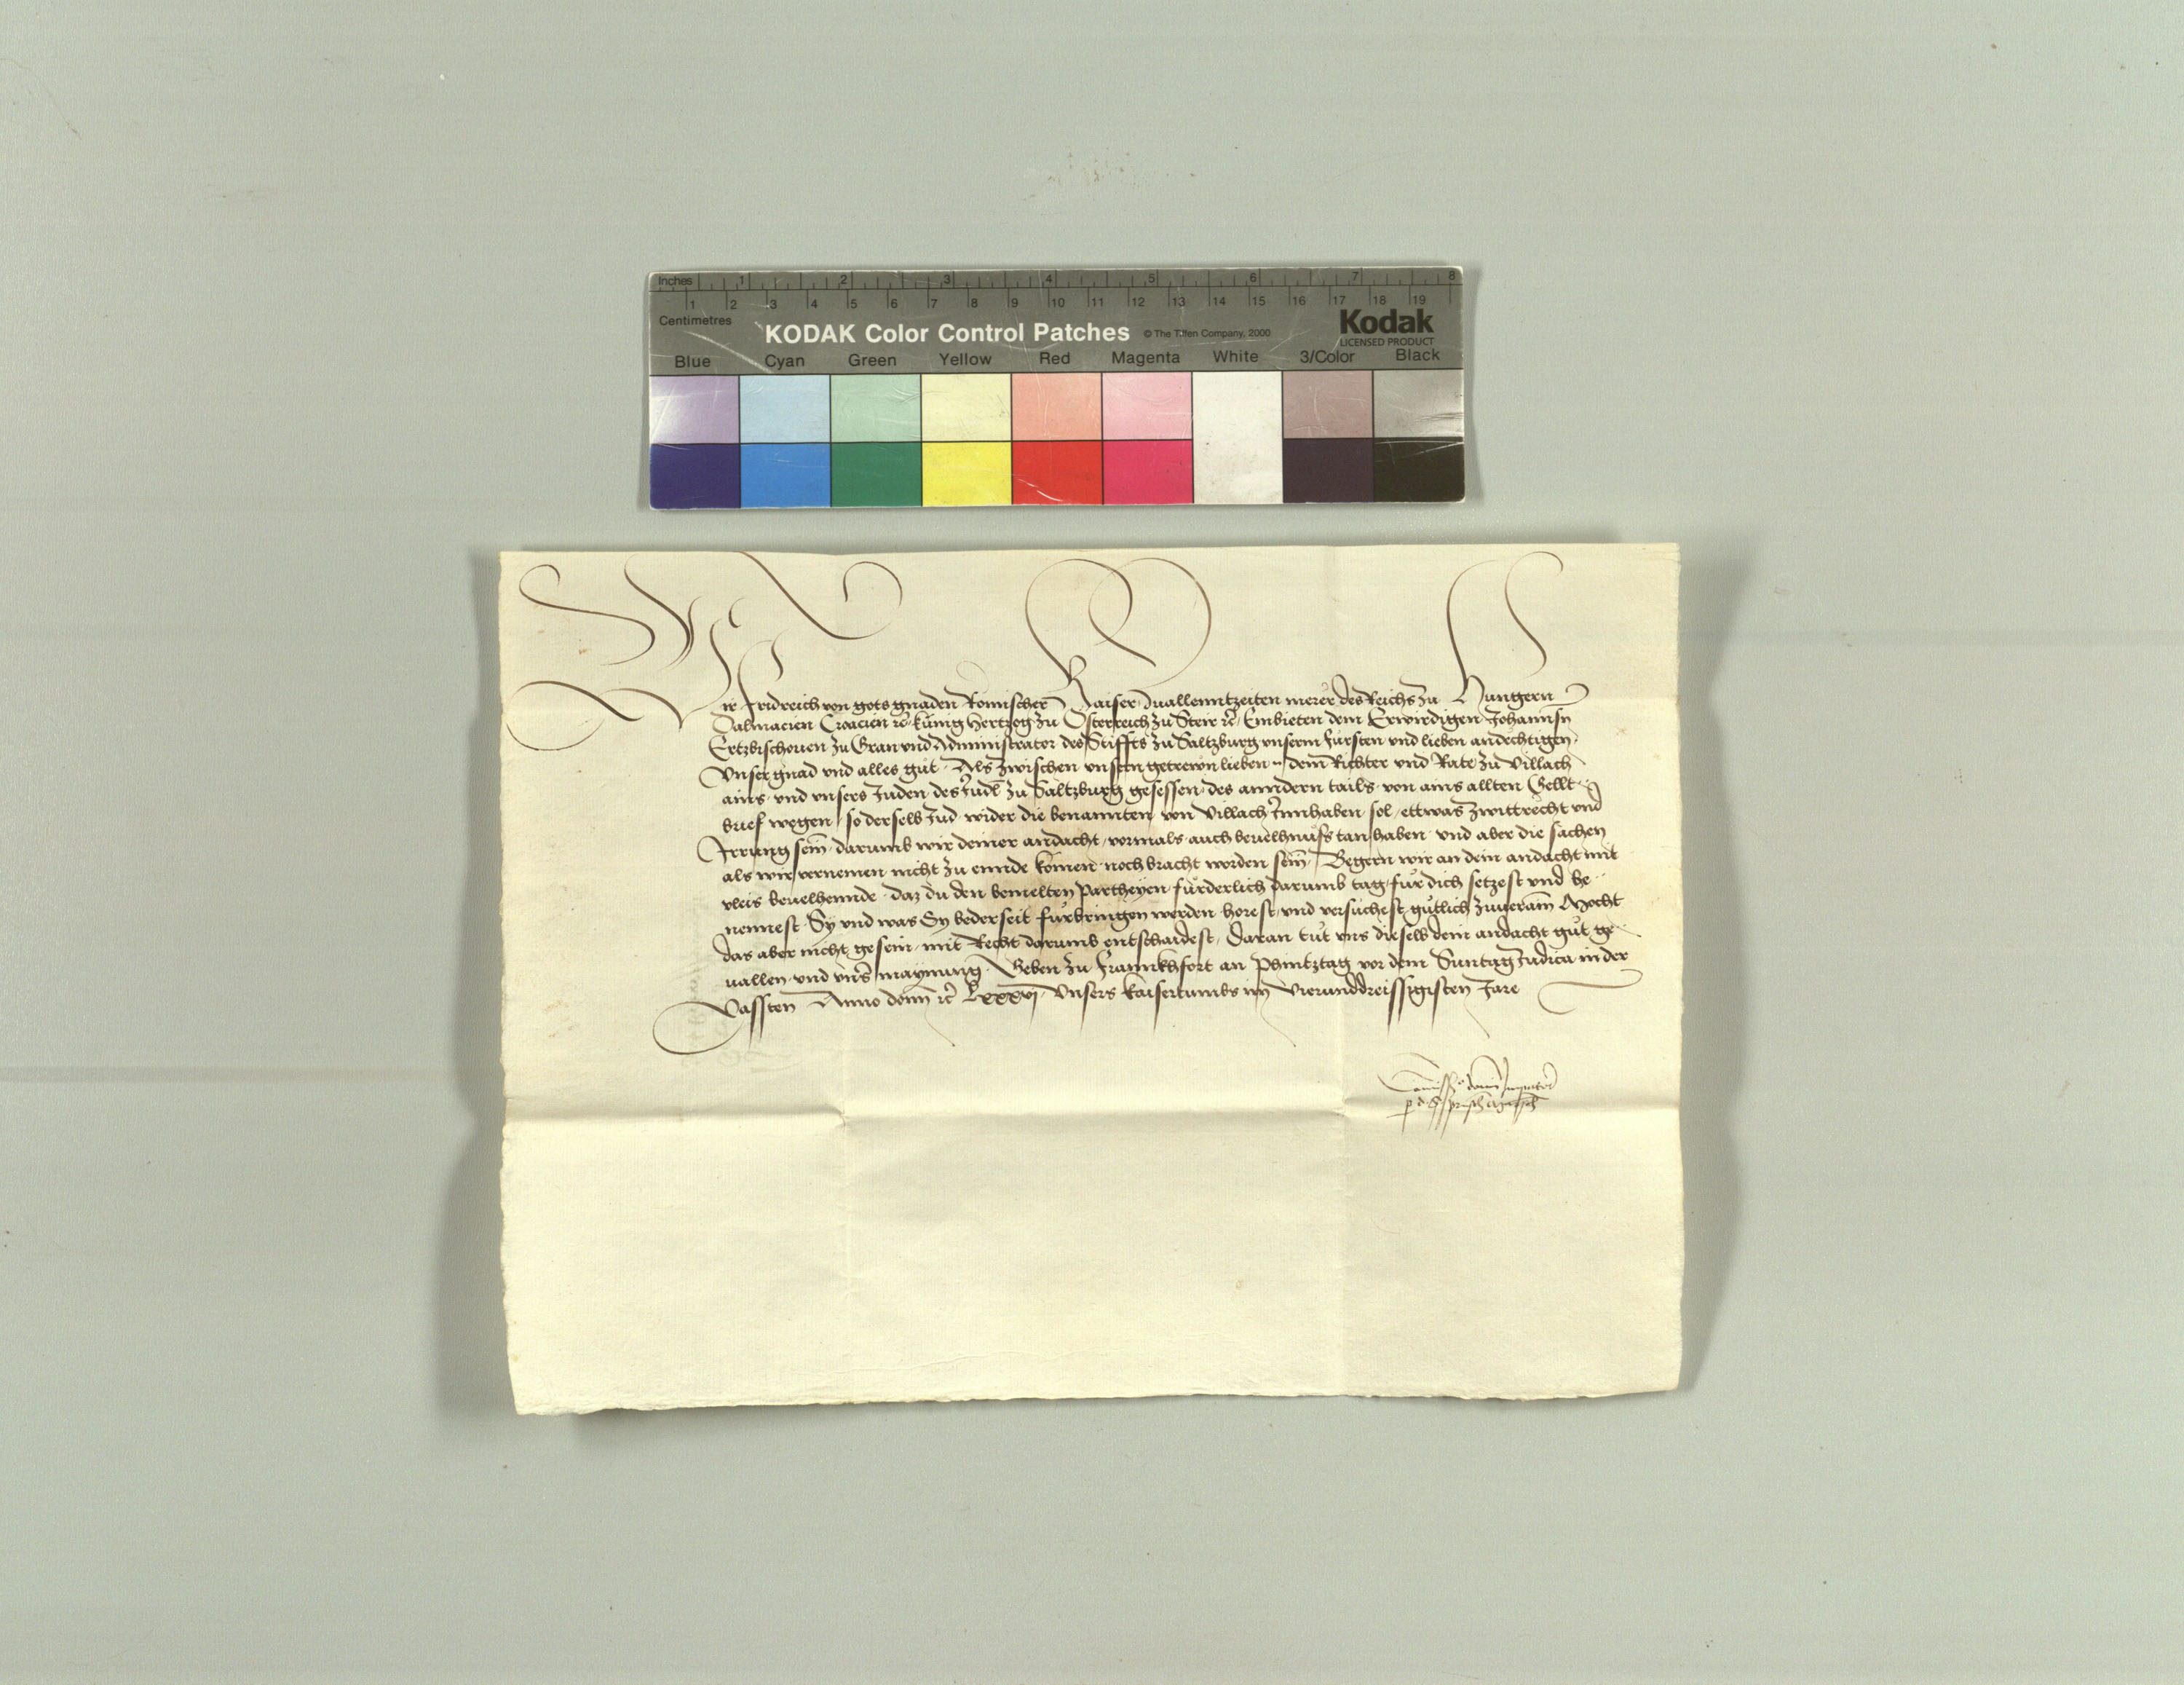 Inches 1 2 3 4 5 6 7 8
1 2 3 4 5 6 7 8 9 10 11 12 13 14 15 16 17 18 19
Centimetres
KODAK Color Control Patches © The Tiffen Company, 2000 Kodak
LICENSED PRODUCT
Blue Cyan Green Yellow Red Magenta White 3/Color Black
Wir Fridreich von gots gnaden Römischer Kaiser zuallenntzeiten merer des Reichs zu Hungern
Dalmacien Croacien rc̄ kunig Hertzog zu Österreich zu Steir rc̄ Embieten dem Erwirdigen Johannsn
Ertzbischouen zu Gran und Administrator des Stiffts zu Saltzburg unserm fürsten und lieben andechtigen
Unser gnad und alles gůt Als zwischen unsern getrewn lieben N dem Richter und Rate zu Villach
ains und unsers Juden des Judl zu Saltzburg gesessen des anndern tails von ains allten Gellt
brief wegen so derselb Jud wider die benannten von Villach Innhaben sol ettwas zwittrecht und
Irrung sein darumb wir deiner andacht vormals auch beuelhnuss tan haben und aber die sachen
als wir vernemen nicht zu ennde komen noch bracht worden sein Begern wir an dein andacht mit
vleis beuelhennde daz du den bemelten partheyen fürderlich darumb tag für dich setzest und be
nennest Sy und was Sy bederseit fürbringen werden horest und versuchest gütlich zuuerain Mocht
das aber nicht gesein mit Recht darumb entschaidest Daran tůt uns dieselb dein andacht gůt ge
uallen und unser maynung Geben zu Frannkhfort an Phintztag vor dem Suntag Judica in der
Vassten Anno domi rc̄ Lxxxvj Unsers Kaisertumbs im Vierunddreissigisten Jare
Comissio domi Imperator